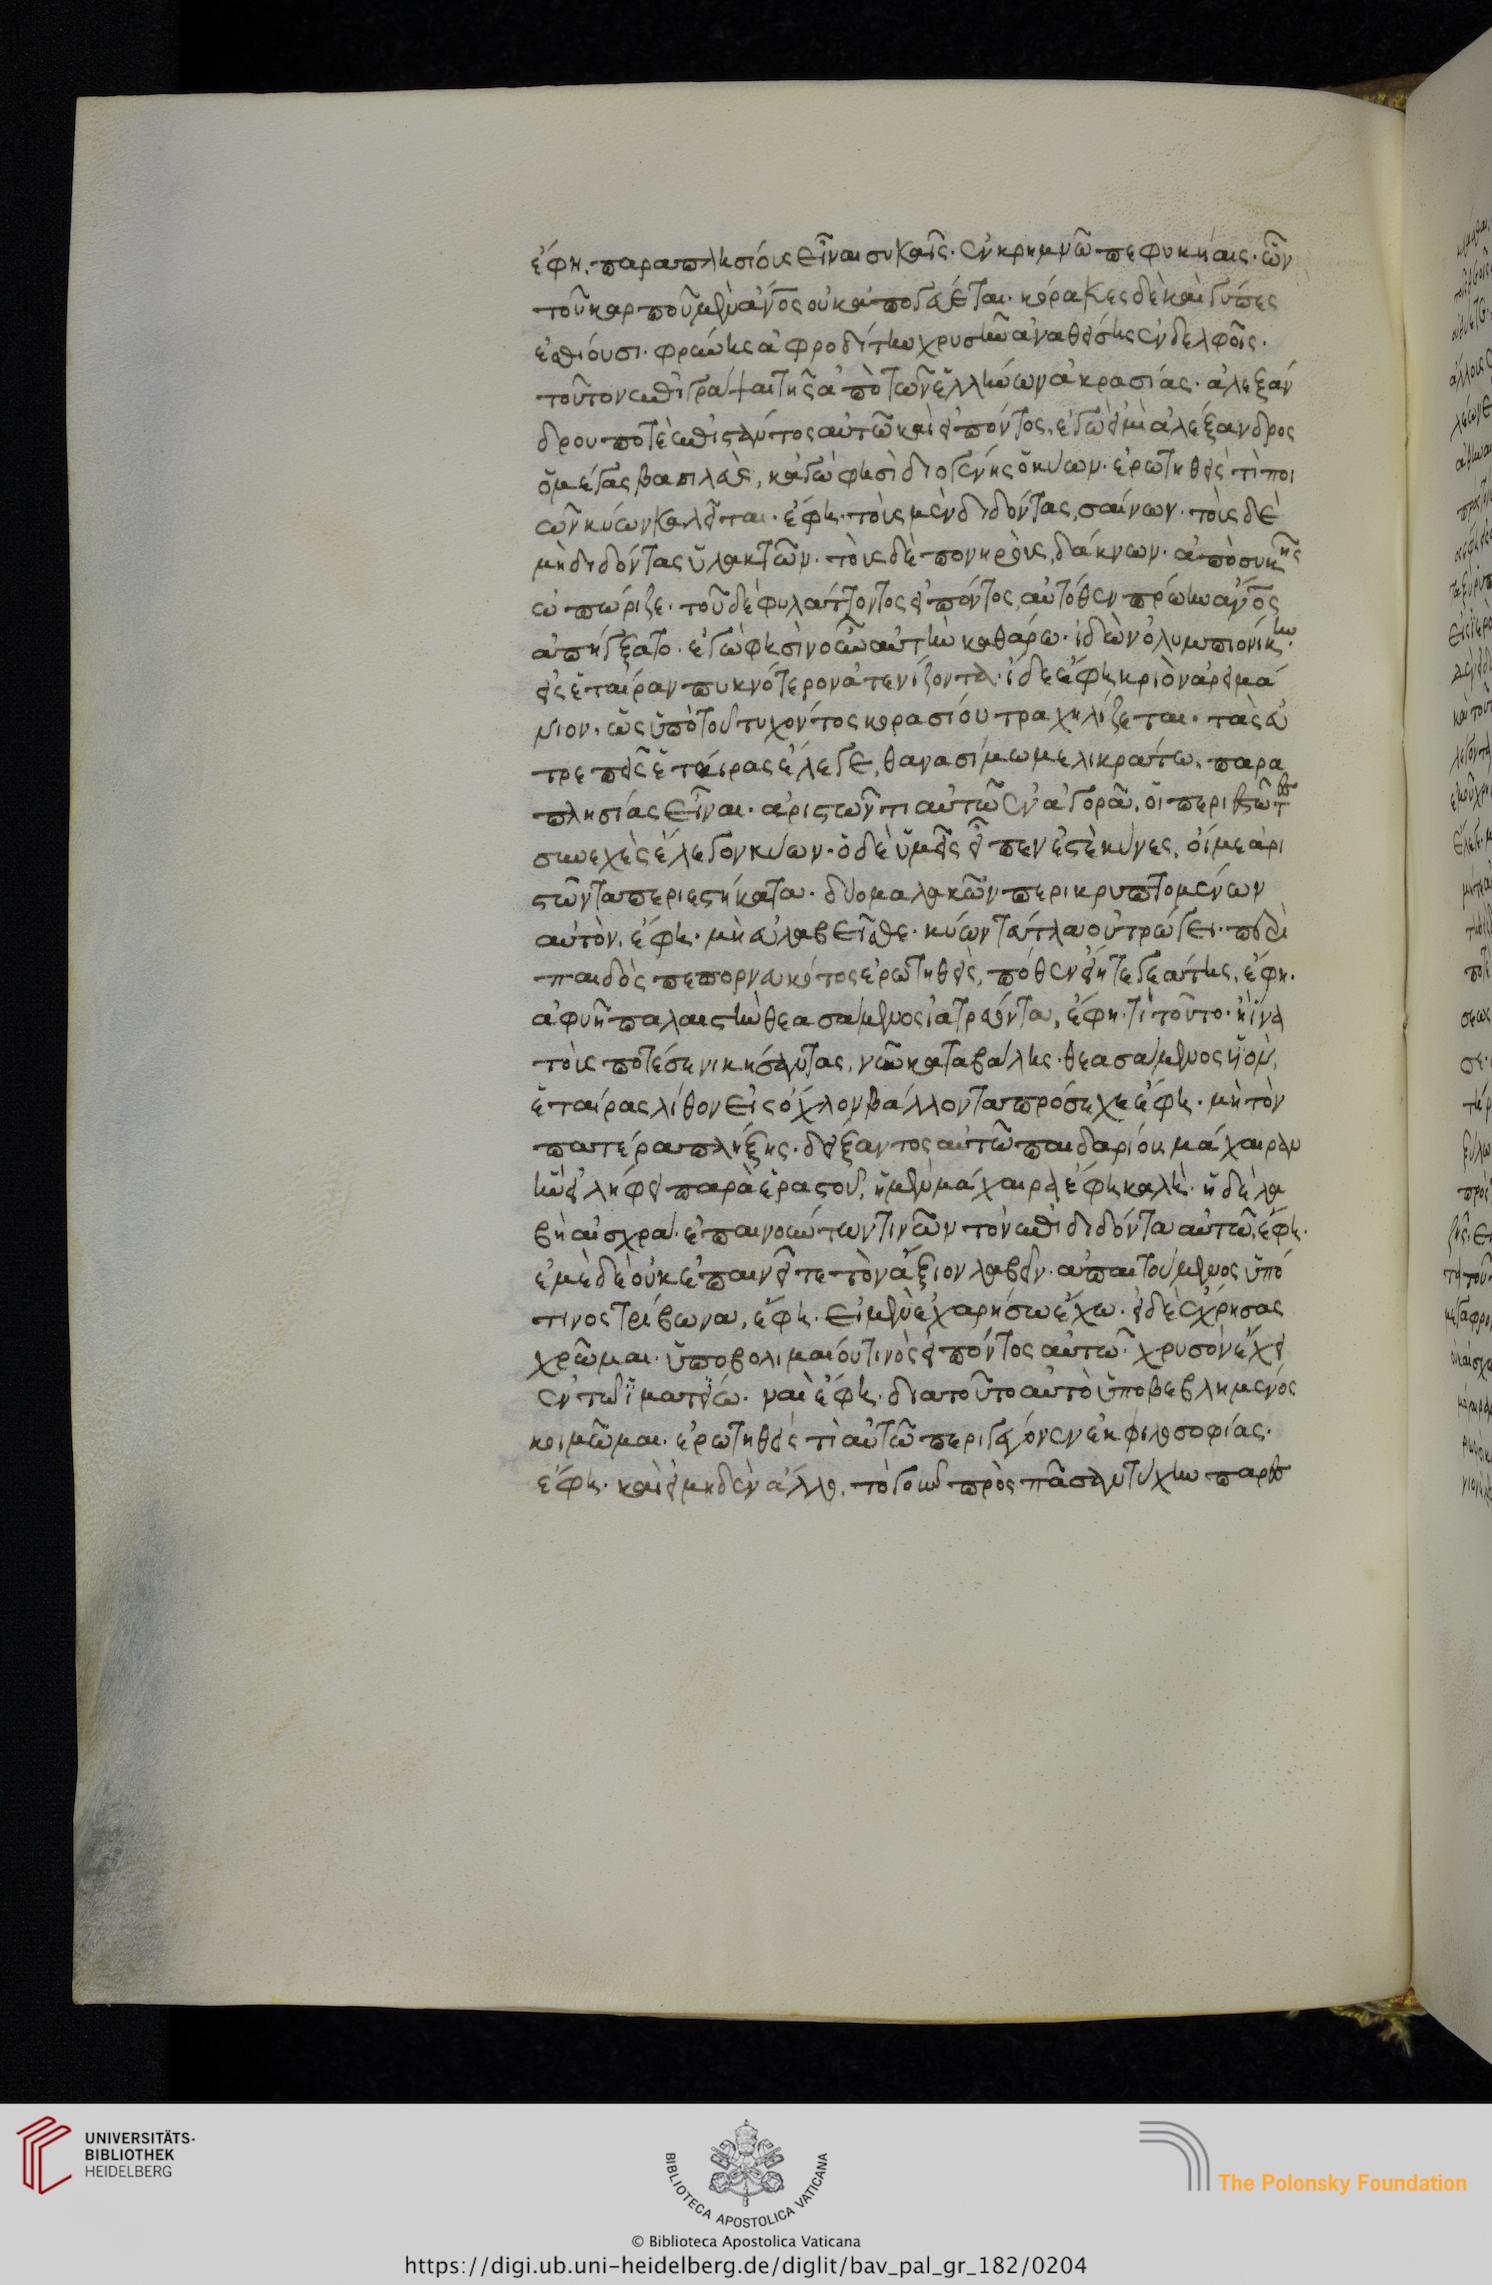 ἔφη. παραπλησίους εἶναι συκαῖς. ἐν κρημνῶ πεφυκηίαις. ὧν
τοῦ καρποῦ μὲν ἄνος οὐκ ἀπογεύεται. κόρακες δὲ καὶ γύπες
ἐσθίουσι. φρύνης ἀφροδίτην χρυσῆν ἀναθείσης ἐν δελφοῖς.
τοῦτον ἐπιγράψαι τῆς ἀπὸ τῶν ἑλλήνων ἀκρασίας. ἀλεξάν
δρου ποτὲ ἐπιστάντος αὐτῶ καὶ εἰπόντος, ἐγώ εἰμι ἀλέξανδρος
ὁ μέγας βασιλεύς, κἀγώ φησι διογένης ὁ κύων. ἐρωτηθεὶς τί ποι
ῶν κύων καλεῖται. ἔφη. τοὺς μὲν διδόντας, σαίνων. τοὺς δὲ
μὴ διδόντας ὑλακτῶν. τοὺς δὲ πονηροὺς, δάκνων. ἀπὸ συκῆς
ὠπώριζε. τοῦ δὲ φυλάττοντος εἰπόντος, αὐτόθεν πρώην ἄνος
ἀπήγξατο. ἐγώ φησιν οὖν αὐτὴν καθαρῶ. ἰδὼν ὀλυμπιονίκην
εἰς ἑταίραν πυκνότερον ἀτενίζοντα. ἴδε ἔφη κριὸν ἀρειμά
νιον. ὡς ὑπὸ τοῦ τυχόντος κορασίου τραχηλίζεται. τὰς εὐ
τρεπεῖς ἑταίρας ἔλεγε, θανασίμω μελικράτω. παρα
πλησίας εἶναι. ἀριστῶντι αὐτῶ ἐν ἀγορᾶ, οἱ περιεστῶτες
συνεχὲς ἔλεγον κύων. ὁ δὲ ὑμεῖς εἶπεν ἐστὲ κύνες, οἵ με ἀρι
στῶντα περιεστήκατα. δύο μαλακῶν περικρυπτομένων
αὐτὸν. ἔφη. μὴ εὐλαβεῖσθε. κύων τεύτλα οὐ τρώγει. περὶ
παιδὸς πεπορνευκότος ἐρωτηθεὶς, πόθεν εἴη τεγεάτης, ἔφη.
ἀφυῆ παλαιστὴν θεασάμενος ἰατρεύοντα, ἔφη. τί τοῦτο. ἢ ἵνα
τοὺς ποτέ σε νικήσαντας, νῦν καταβάλης. θεασάμενος υἱὸν,
ἑταίρας λίθον εἰς ὄχλον βάλλοντα πρόσεχε ἔφη. μὴ τὸν
πατέρα πλήξης. δείξαντος αὐτῶ παιδαρίου μάχαιραν
ἣν εἰλήφει παρὰ ἐραστοῦ, ἡ μὲν μάχαιρα ἔφη καλή. ἡ δὲ λα
βὴ αἰσχρά. ἐπαινούντων τινῶν τὸν ἐπιδιδόντα αὐτῶ, ἔφη.
ἐμὲ δὲ οὐκ ἐπαινεῖτε τὸν ἄξιον λαβεῖν. ἀπαιτούμενος ὑπό
τινος τρίβωνα, ἔφη. εἰ μὲν ἐχαρήσω ἔχω. εἰ δὲ ἔχρησας
χρῶμαι. ὑποβολιμαίου τινὸς εἰπόντος αὐτῶ. χρυσὸν ἔχει
ἐν τῶ ἱματίω. ναὶ ἔφη. διατοῦτο αὐτὸ ὑποβεβλημένος
κοιμῶμαι. ἐρωτηθεὶς τί αὐτῶ περιγέγονεν ἐκ φιλοσοφίας.
ἔφη. καὶ εἰ μηδὲν ἄλλο, τὸ γοῦν πρὸς πᾶσαν τύχην παρε
UNIVERSITÄTS-
BIBLIOTHEK
HEIDELBERG
BIBLIOTECA APOSTOLICA VATICANA
The Polonsky Foundation
© Biblioteca Apostolica Vaticana
https://digi.ub.uni-heidelberg.de/diglit/bav_pal_gr_182/0204